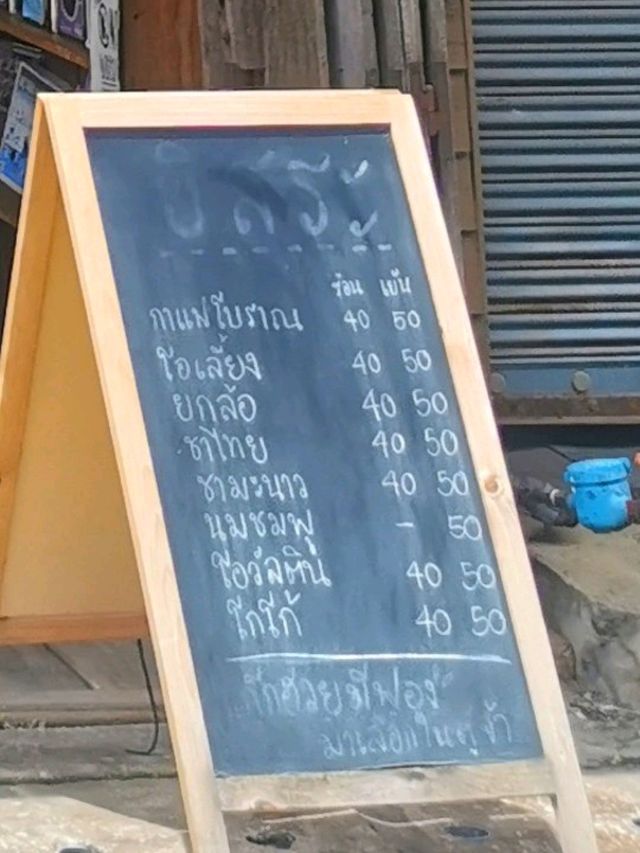 ร้อน เย็น
กาแฟโบราณ 40 50
โอเลี้ยง 40 50
ยกล้อ 40 50
ชาไทย 40 50
ชามะนาว 40 50
นมชมพู - 50
โอวัลติน 40 50
โกโก้ 40 50